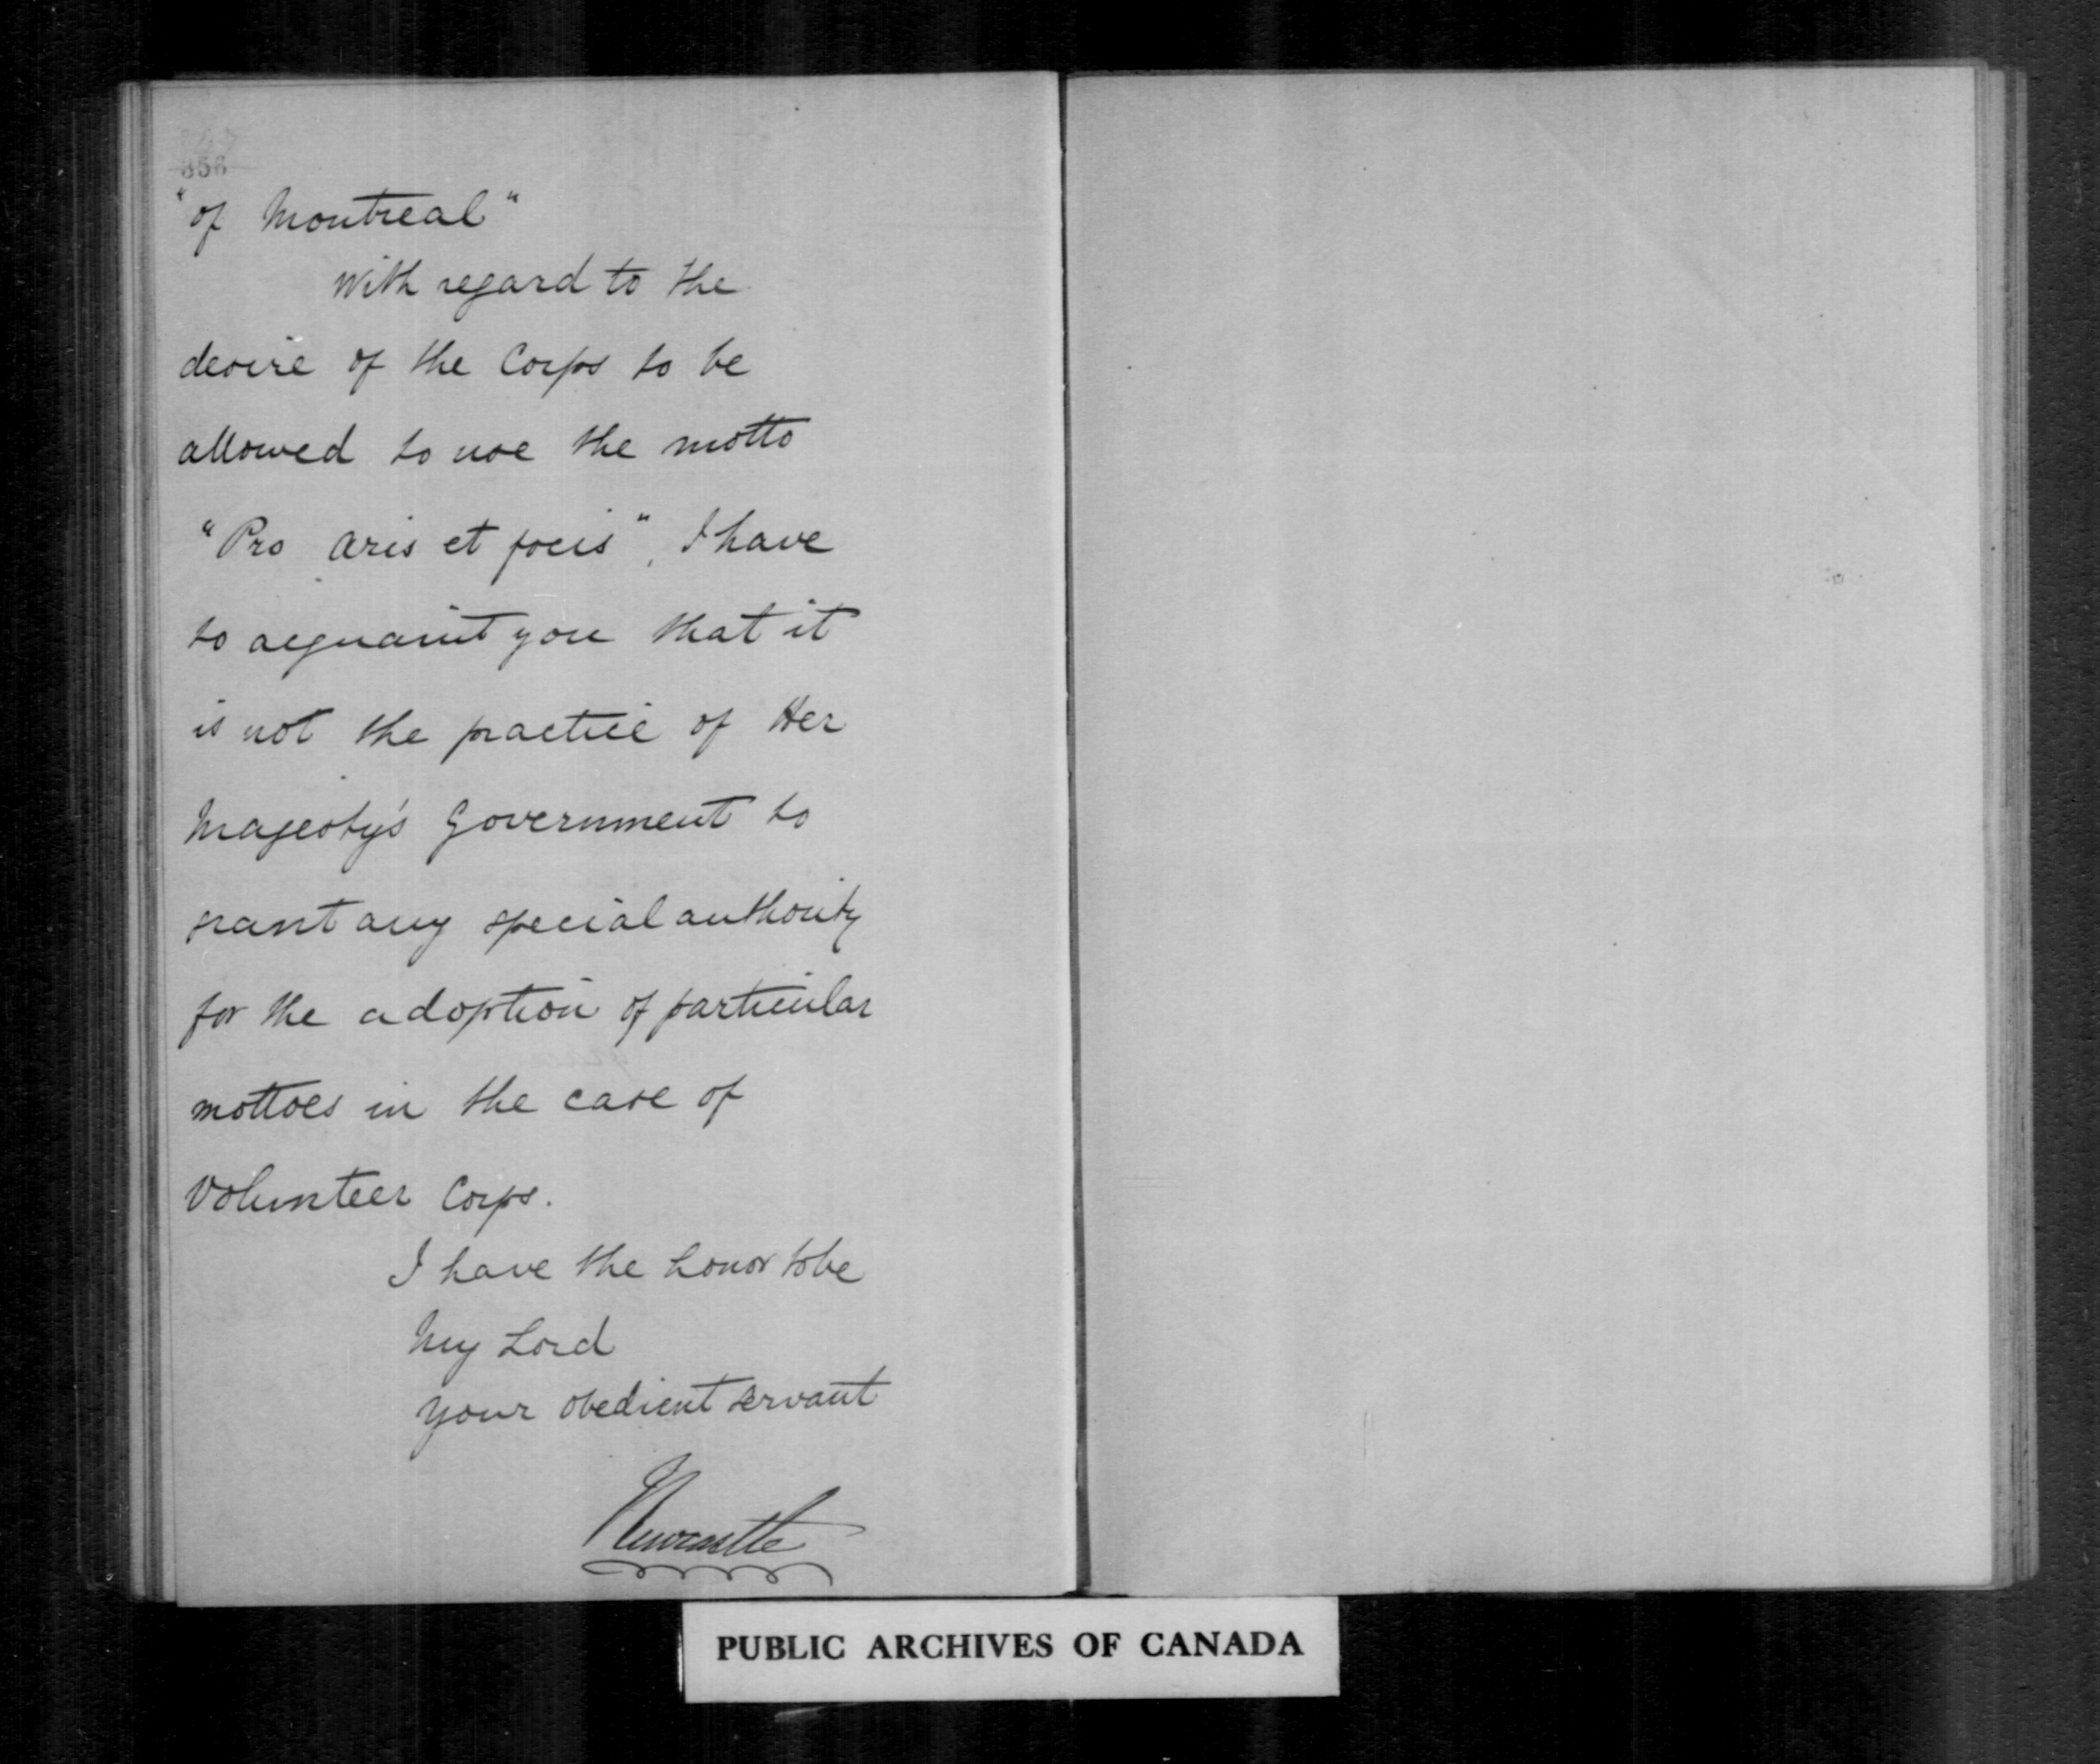 356
"of Montreal"
With regard to the
desire of the Corps to be
allowed to use the motto
"Pro Aris et focis", I have
to acquaint you that it
is not the practice of Her
Majesty's Government to
grant any special authority
for the adoption of particular
mottoes in the case of
Volunteer Corps.
I have the honor to be
My Lord
Your obedient servant
Newcastle
PUBLIC ARCHIVES OF CANADA